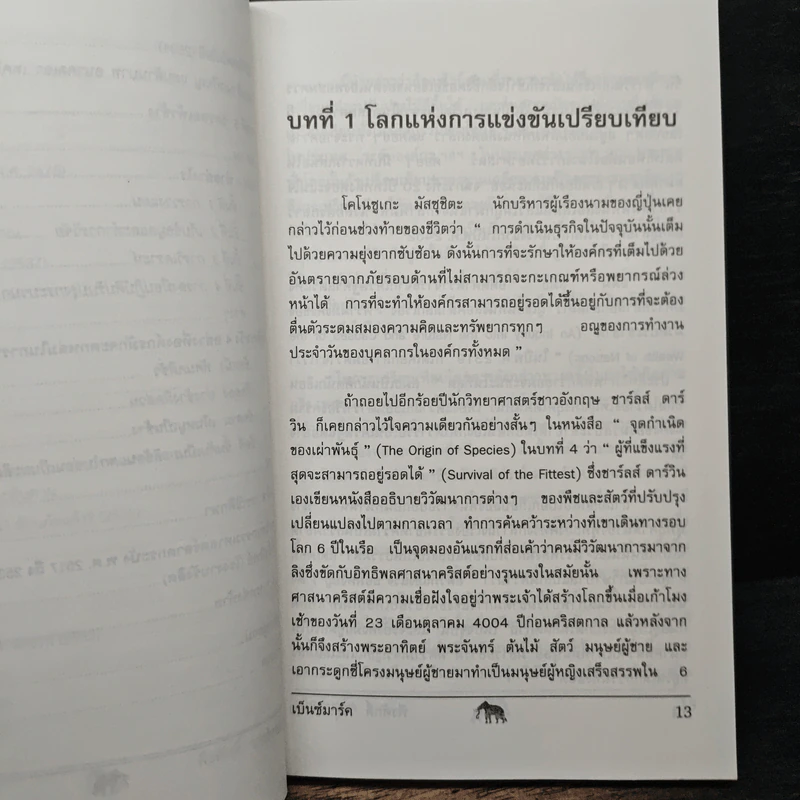 บทที่ 1 โลกแห่งการแข่งขันเปรียบเทียบ
โคโนซูเกะ มัสซุชิตะ นักบริหารผู้เรืองนามของญี่ปุ่นเคย
กล่าวไว้ก่อนช่วงท้ายของชีวิตว่า “ การดำเนินธุรกิจในปัจจุบันนั้นเต็ม
ไปด้วยความยุ่งยากซับซ้อน ดังนั้นการที่จะรักษาให้องค์กรที่เต็มไปด้วย
อันตรายจากภัยรอบด้านที่ไม่สามารถจะกะเกณฑ์หรือพยากรณ์ล่วง
หน้าได้ การที่จะทำให้องค์กรสามารถอยู่รอดได้ขึ้นอยู่กับการที่จะต้อง
ตื่นตัวระดมสมองความคิดและทรัพยากรทุกๆ อณูของการทำงาน
ประจำวันของบุคลากรในองค์กรทั้งหมด ”
ถ้าถอยไปอีกร้อยปีนักวิทยาศาสตร์ชาวอังกฤษ ชาร์ลส์ ดาร์
วิน ก็เคยกล่าวไว้ใจความเดียวกันอย่างสั้นๆ ในหนังสือ “ จุดกำเนิด
ของเผ่าพันธุ์ ” (The Origin of Species) ในบทที่ 4 ว่า “ ผู้ที่แข็งแรงที่
สุดจะสามารถอยู่รอดได้ ” (Survival of the Fittest) ซึ่งชาร์ลส์ ดาร์วิน
เองเขียนหนังสืออธิบายวิวัฒนาการต่างๆ ของพืชและสัตว์ที่ปรับปรุง
เปลี่ยนแปลงไปตามกาลเวลา ทำการค้นคว้าระหว่างที่เขาเดินทางรอบ
โลก 6 ปีในเรือ เป็นจุดมองอันแรกที่ส่อเค้าว่าคนมีวิวัฒนาการมาจาก
ลิงซึ่งขัดกับอิทธิพลศาสนาคริสต์อย่างรุนแรงในสมัยนั้น เพราะทาง
ศาสนาคริสต์มีความเชื่อฝังใจอยู่ว่าพระเจ้าได้สร้างโลกขึ้นเมื่อเก้าโมง
เช้าของวันที่ 23 เดือนตุลาคม 4004 ปีก่อนคริสตกาล แล้วหลังจาก
นั้นก็จึงสร้างพระอาทิตย์ พระจันทร์ ต้นไม้ สัตว์ มนุษย์ผู้ชาย และ
เอากระดูกซี่โครงมนุษย์ผู้ชายมาทำเป็นมนุษย์ผู้หญิงเสร็จสรรพใน 6
เบ็นช์มาร์ค 13